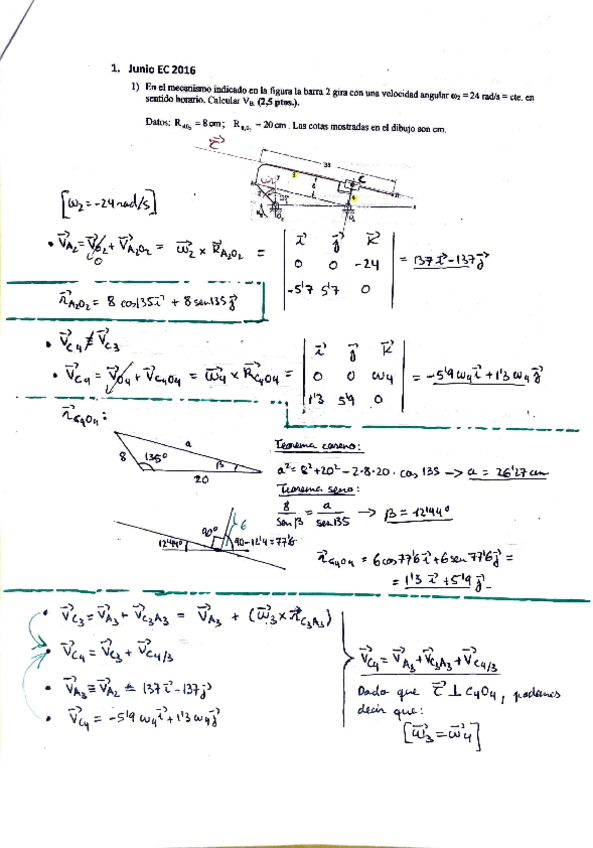 1. Junio EC 2016
1) En el mecanismo indicado en la figura la barra 2 gira con una velocidad angular ω₂ = 24 rad/s = cte. en
sentido horario. Calcular V_B. (2,5 ptos.).
Datos: R_AO₂ = 8cm; R_O₄O₂ = 20cm. Las cotas mostradas en el dibujo son cm.
38
[ω₂ = -24 rad/s]
• V⃗A₂ = V⃗O₂ + V⃗A₂O₂ = ω⃗₂ x R⃗A₂O₂ = | i⃗ j⃗ k⃗ |
0
| 0 0 -24 | = 137i⃗ - 137j⃗
| -5'7 5'7 0 |
r⃗A₂O₂ = 8 cos135i⃗ + 8 sen135j⃗
• V⃗C₄ ≢ V⃗C₃
• V⃗C₄ = V⃗O₄ + V⃗C₄O₄ = ω⃗₄ x R⃗C₄O₄ = | i⃗ j⃗ k⃗ |
| 0 0 ω₄ | = -5'9 ω₄i⃗ + 1'3 ω₄j⃗
| 1'3 5'9 0 |
r⃗C₄O₄ :
a
8 135º β
20
Teorema coseno:
a² = 8² + 20² - 2·8·20 · cos 135 -> a = 26'27 cm
Teorema seno:
8/sen β = a/sen135 -> β = 12'44º
12'44º 90º 6 90-12'4=77'6
r⃗C₄O₄ = 6cos77'6i⃗ + 6sen77'6j⃗ =
= 1'3 i⃗ + 5'9j⃗
• V⃗C₃ = V⃗A₃ + V⃗C₃A₃ = V⃗A₃ + (ω⃗₃ x r⃗C₃A₃)
• V⃗C₄ = V⃗C₃ + V⃗C₄/₃
• V⃗A₃ ≡ V⃗A₂ = 137i⃗ - 137j⃗
• V⃗C₄ = -5'9 ω₄i⃗ + 1'3 ω₄j⃗
V⃗C₄ = V⃗A₃ + V⃗C₃A₃ + V⃗C₄/₃
Dado que τ⃗ ⊥ C₄O₄, podemos
decir que:
[ω⃗₃ = ω⃗₄]